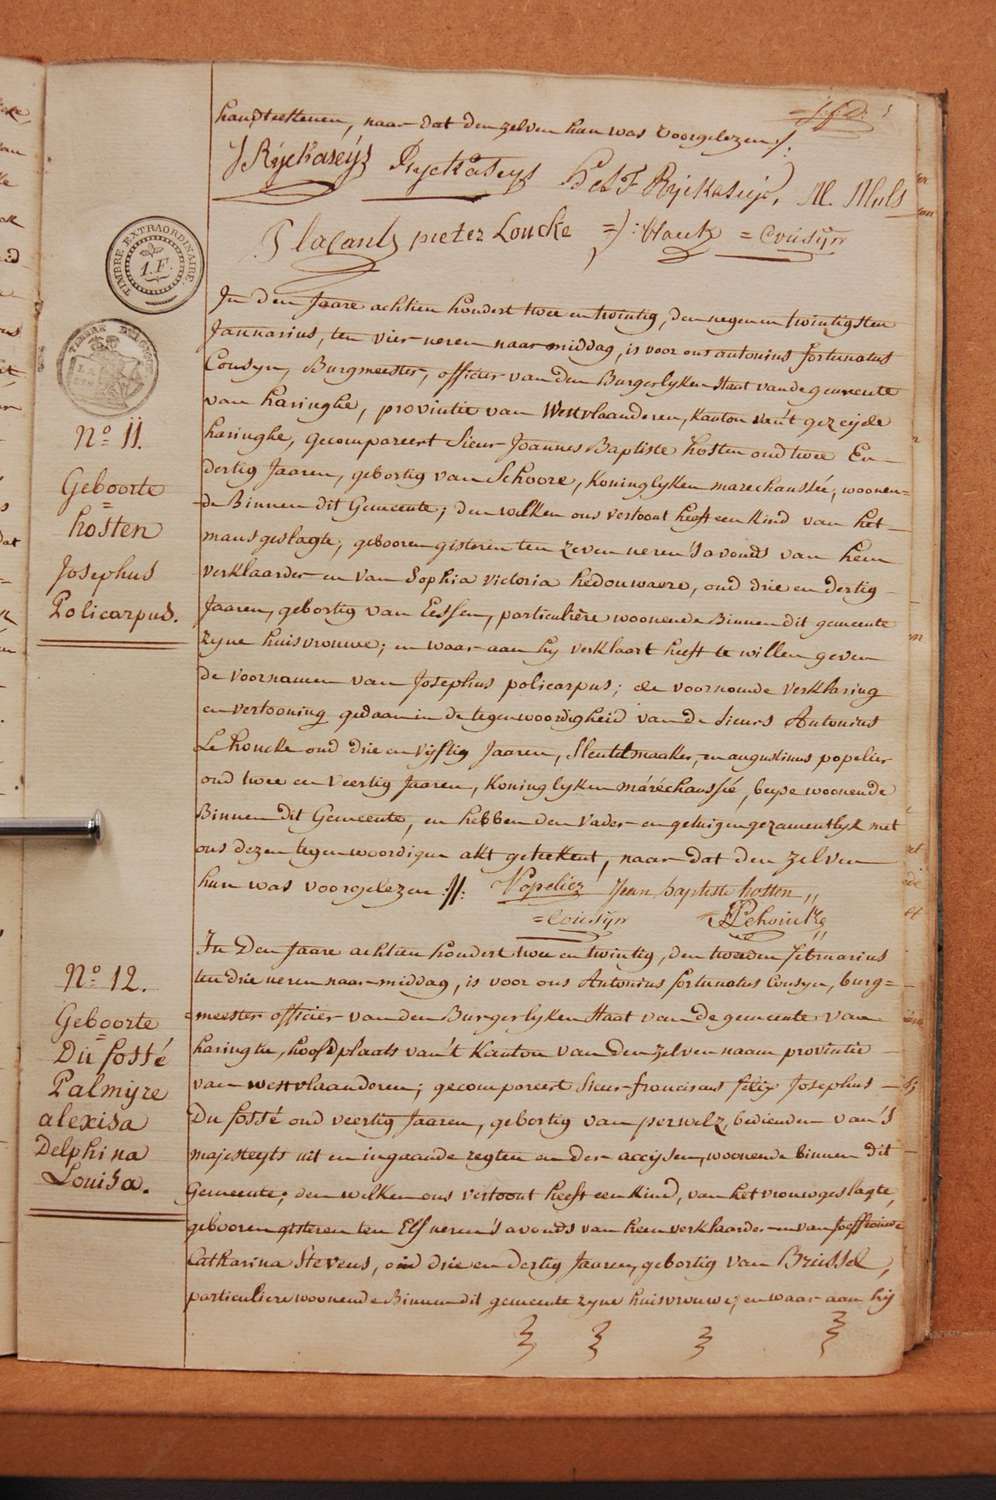 handteekenen, naar dat den zelven hun was voorgelezen //.
J Ryckaseÿs Ryckaseys Ryckaseys, M. Muls
Placant pieter Loncke =Cousÿn
TIMBRE EXTRAORDINAIRE.
1. F.
In den Jaare achtien hondert twee en twintig, den negenentwintigsten
Januarius, ten vier uren naar middag, is voor ons antonius fortunatus
Cousyn, Burgmeester, officier van den Burgerlyken staat van de gemeente
van haringhe, provintie van Westvlaanderen, kanton van't gezeijde
N.º 11.
haringhe, gecompareert Sieur Joannes Baptiste hosten oud twee En
dertig Jaaren, gebortig van Schoore, koninglyken marechaussée, woonen=
Geboorte
=
de Binnen dit Gemeente; den welken ons vertoont heeft een kind van het
hosten
mans geslagte, gebooren gisteren ten zeven uren 's avonds van hem
Josephus
verklaarder en van Sophia victoria hedouwaere, oud drie en dertig
Policarpus.
Jaaren, gebortig van Eessen, particulière woonende Binnen dit gemeente
zyne huisvrouwe; en waar aan hy verklaart heeft te willen geven
de voornamen van Josephus policarpus; de voornoemde verklaring
en vertooning gedaan in de tegenwoordigheid van de sieurs Antonius
Lehoucke oud drie en vijftig Jaaren, Sleutelmaaker, en augustinus popelier
oud twee en veertig Jaaren, koninglyken maréchaussié, beyde woonende
Binnen dit Gemeente, en hebben den vader en getuigen gezamentlyk met
ons dezen tegenwoordigen akt geteekent, naar dat den zelven
hun was voorgelezen //: Popelier Jean baptiste hosten
=Cousÿn Lehoucke
In Den Jaare achtien hondert twee en twintig, den tweeden februarius
N.º 12.
ten drie uren naar middag, is voor ons Antonius fortunatus Cousyn, burg=
Geboorte
=
meester officier van den Burgerlyken staat van de gemeente van
Du fossé
haringhe, hoofdplaats van 't kanton van den zelven naam provintie
Palmÿre
van westvlaanderen; gecompareert Sieur franciscus félix Josephus
alexisa
Du fossé oud veertig Jaaren, gebortig van perwelz, bedienden van 'S
Delphina
majesteyts uit en ingaande regten en der accijsen, woonende binnen dit
Louisa.
Gemeente; den welken ons vertoont heeft een kind, van het vrouwgeslagte,
gebooren gisteren ten Elf uren 's avonds van hem verklaarder en van Joeffrouwe
Catharina Stevens, oud drie en dertig Jaaren, gebortig van Brussel,
particuliere woonende Binnen dit gemeente zyne huisvrouwe; en waar aan hij